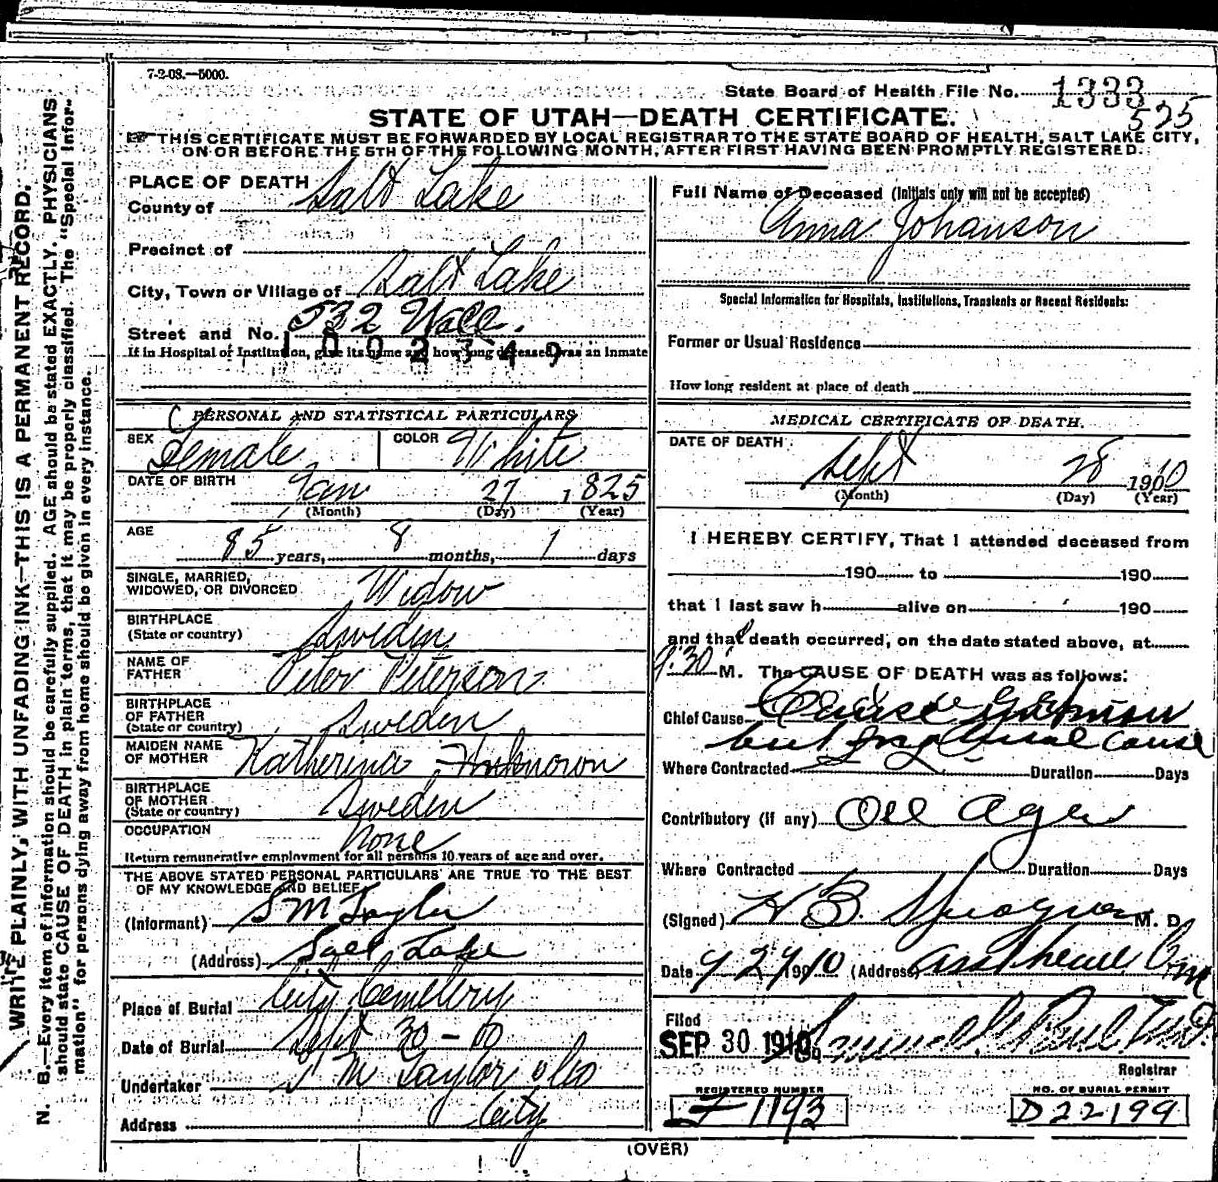 7-2-08.—5000.
State Board of Health File No. 1333
525
STATE OF UTAH—DEATH CERTIFICATE.
THIS CERTIFICATE MUST BE FORWARDED BY LOCAL REGISTRAR TO THE STATE BOARD OF HEALTH, SALT LAKE CITY,
ON OR BEFORE THE 5TH OF THE FOLLOWING MONTH, AFTER FIRST HAVING BEEN PROMPTLY REGISTERED.
WRITE PLAINLY, WITH UNFADING INK—THIS IS A PERMANENT RECORD.
N. B.—Every item of information should be carefully supplied. AGE should be stated EXACTLY. PHYSICIANS
should state CAUSE OF DEATH in plain terms, that it may be properly classified. The "Special Infor-
mation" for persons dying away from home should be given in every instance.
PLACE OF DEATH
County of Salt Lake
Precinct of
City, Town or Village of Salt Lake
Street and No. 532 Wall.
1002349
If in Hospital or Institution, give its name and how long deceased was an Inmate
PERSONAL AND STATISTICAL PARTICULARS
SEX Female COLOR White
DATE OF BIRTH Jan 27, 1825
(Month) (Day) (Year)
AGE 85 years, 8 months, 1 days
SINGLE, MARRIED,
WIDOWED, OR DIVORCED Widow
BIRTHPLACE
(State or country) Sweden
NAME OF
FATHER Peter Peterson
BIRTHPLACE
OF FATHER
(State or country) Sweden
MAIDEN NAME
OF MOTHER Katherina - Unknown
BIRTHPLACE
OF MOTHER
(State or country) Sweden
OCCUPATION None
Return remunerative employment for all persons 10 years of age and over.
THE ABOVE STATED PERSONAL PARTICULARS ARE TRUE TO THE BEST
OF MY KNOWLEDGE AND BELIEF
(Informant) S M Taylor
(Address) Salt Lake
Place of Burial City Cemetery
Date of Burial Sept 30-10
Undertaker S M Taylor & Co
Address City
Full Name of Deceased (Initials only will not be accepted)
Anna Johanson
Special Information for Hospitals, Institutions, Transients or Recent Residents:
Former or Usual Residence
How long resident at place of death
MEDICAL CERTIFICATE OF DEATH.
DATE OF DEATH
Sept 28 1910
(Month) (Day) (Year)
I HEREBY CERTIFY, That I attended deceased from
190 to 190
that I last saw h alive on 190
and that death occurred, on the date stated above, at
9:30 M. The CAUSE OF DEATH was as follows:
Chief Cause Cause Unknown
but from natural cause
Where Contracted Duration Days
Contributory (if any) Old Age
Where Contracted Duration Days
(Signed) H B Sprague M. D.
Date 9 29 1910 (Address)
Filed
SEP 30 1910
Registrar
REGISTERED NUMBER
F 1193
NO. OF BURIAL PERMIT
D22199
(OVER)